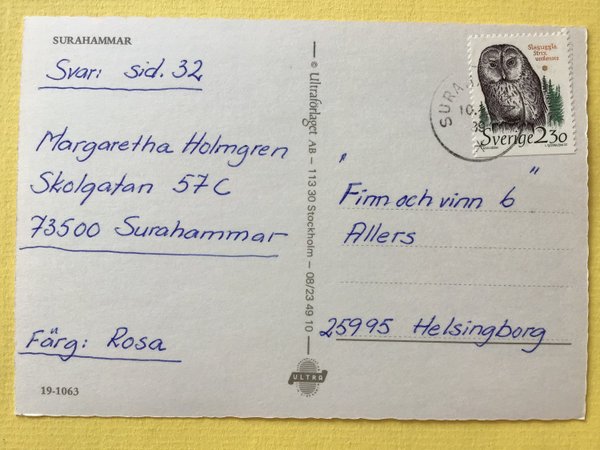 SURAHAMMAR
Svar: sid. 32
Margaretha Holmgren
Skolgatan 57 C
73500 Surahammar
Färg: Rosa
19-1063
© Ultraförlaget AB – 113 30 Stockholm – 08/23 49 10
ULTRA
SURA
10.
Slaguggla
Strix
uralensis
Sverige 2.30
"Finn och vinn 6"
Allers
25995 Helsingborg